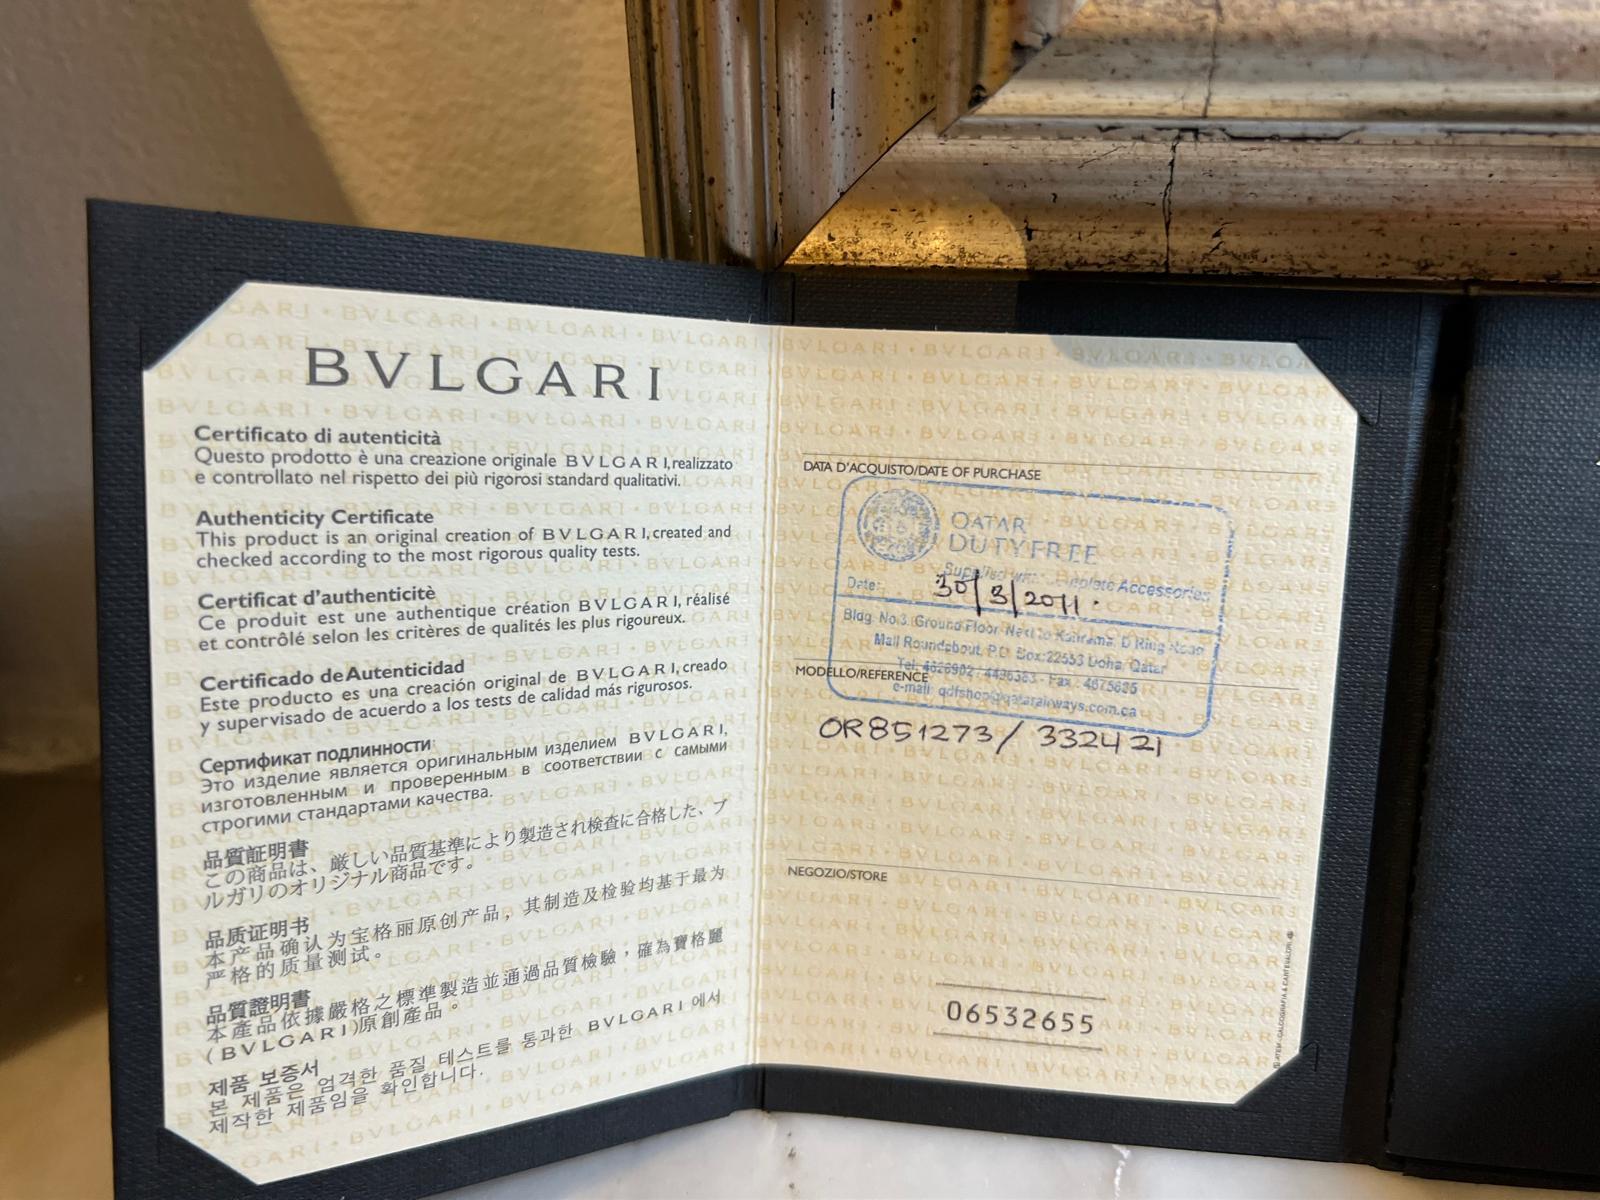 BVLGARI
Certificato di autenticità
Questo prodotto è una creazione originale BVLGARI, realizzato
e controllato nel rispetto dei più rigorosi standard qualitativi.
Authenticity Certificate
This product is an original creation of BVLGARI, created and
checked according to the most rigorous quality tests.
Certificat d'authenticitè
Ce produit est une authentique création BVLGARI, réalisé
et contrôlé selon les critères de qualités les plus rigoureux.
Certificado de Autenticidad
Este producto es una creación original de BVLGARI, creado
y supervisado de acuerdo a los tests de calidad más rigurosos.
Сертификат подлинности
Это изделие является оригинальным изделием BVLGARI,
изготовленным и проверенным в соответствии с самыми
строгими стандартами качества.
品質証明書
この商品は、厳しい品質基準により製造され検査に合格した、ブ
ルガリのオリジナル商品です。
品质证明书
本产品确认为宝格丽原创产品，其制造及检验均基于最为
严格的质量测试。
品質證明書
本產品依據嚴格之標準製造並通過品質檢驗，確為寶格麗
(BVLGARI)原創產品。
제품 보증서
본 제품은 엄격한 품질 테스트를 통과한 BVLGARI 에서
제작한 제품임을 확인합니다.
DATA D'ACQUISTO/DATE OF PURCHASE
QATAR
DUTY FREE
Supplied with Complete Accessories
Date: 30/3/2011.
Bldg. No 3. Ground Floor, Next to Kahrama, D Ring Road
Mall Roundabout, P.O. Box: 22553 Doha, Qatar
Tel: 4626902 / 4436363 - Fax : 4675635
MODELLO/REFERENCE
e-mail: qdfshop@qatarairways.com.qa
OR851273/ 332421
NEGOZIO/STORE
06532655